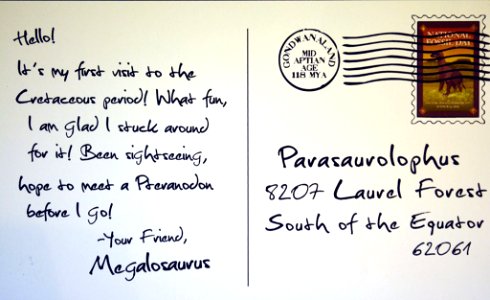 Hello!
It's my first visit to the
Cretaceous period! What fun,
I am glad I stuck around
for it! Been sightseeing,
hope to meet a Pteranodon
before I go!
-Your Friend,
Megalosaurus
GONDWANALAND
MID
APTIAN
AGE
118 MYA
NATIONAL
FOSSIL DAY
Parasaurolophus
8207 Laurel Forest
South of the Equator
62061